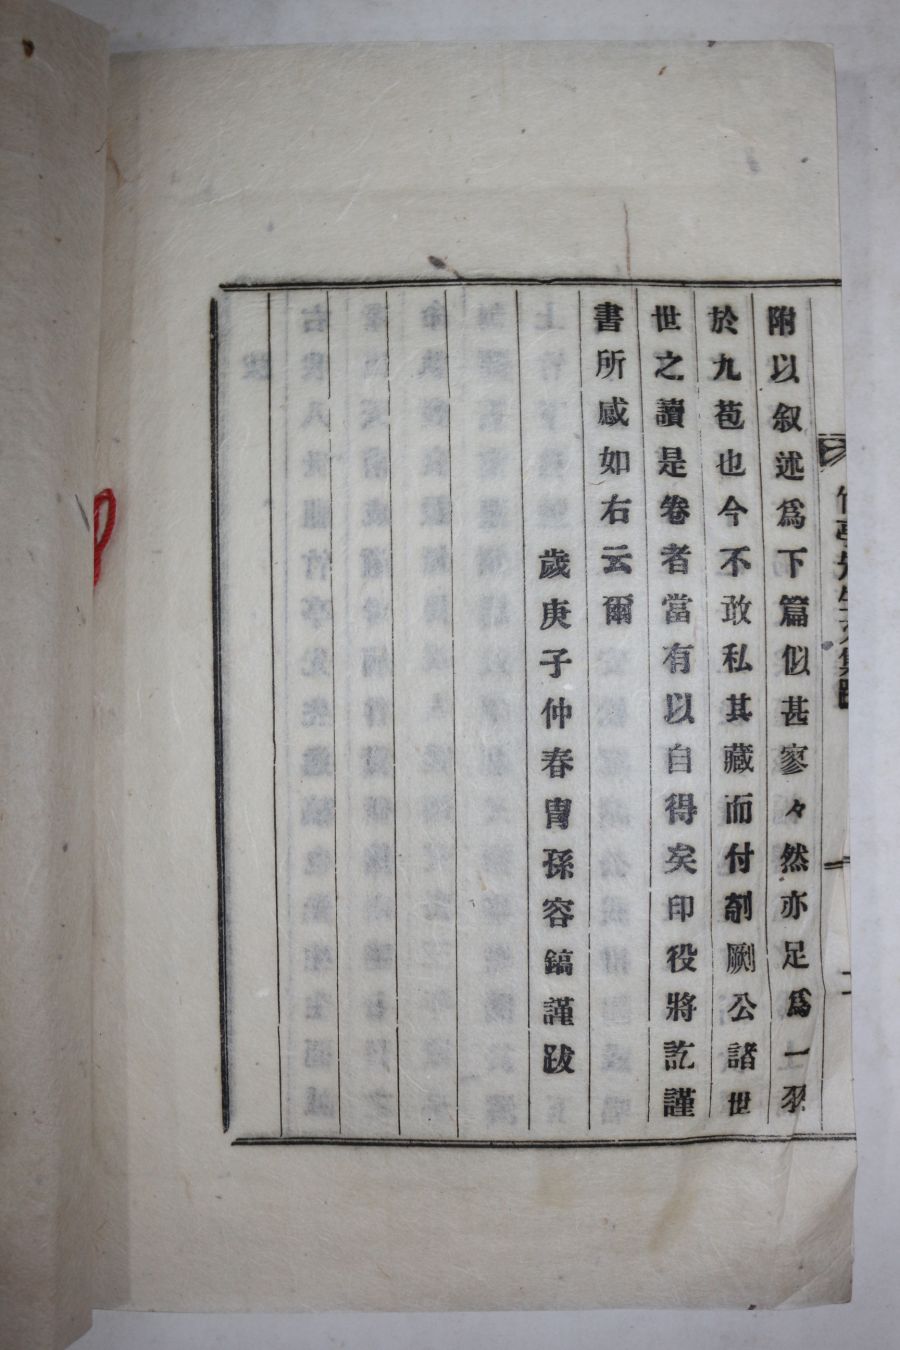 竹亭先生文集跋
二
附以叙述爲下篇似甚寥々然亦足爲一羽
於九苞也今不敢私其藏而付剞劂公諸世
世之讀是卷者當有以自得矣印役將訖謹
書所感如右云爾
歲庚子仲春胄孫容鎬謹跋